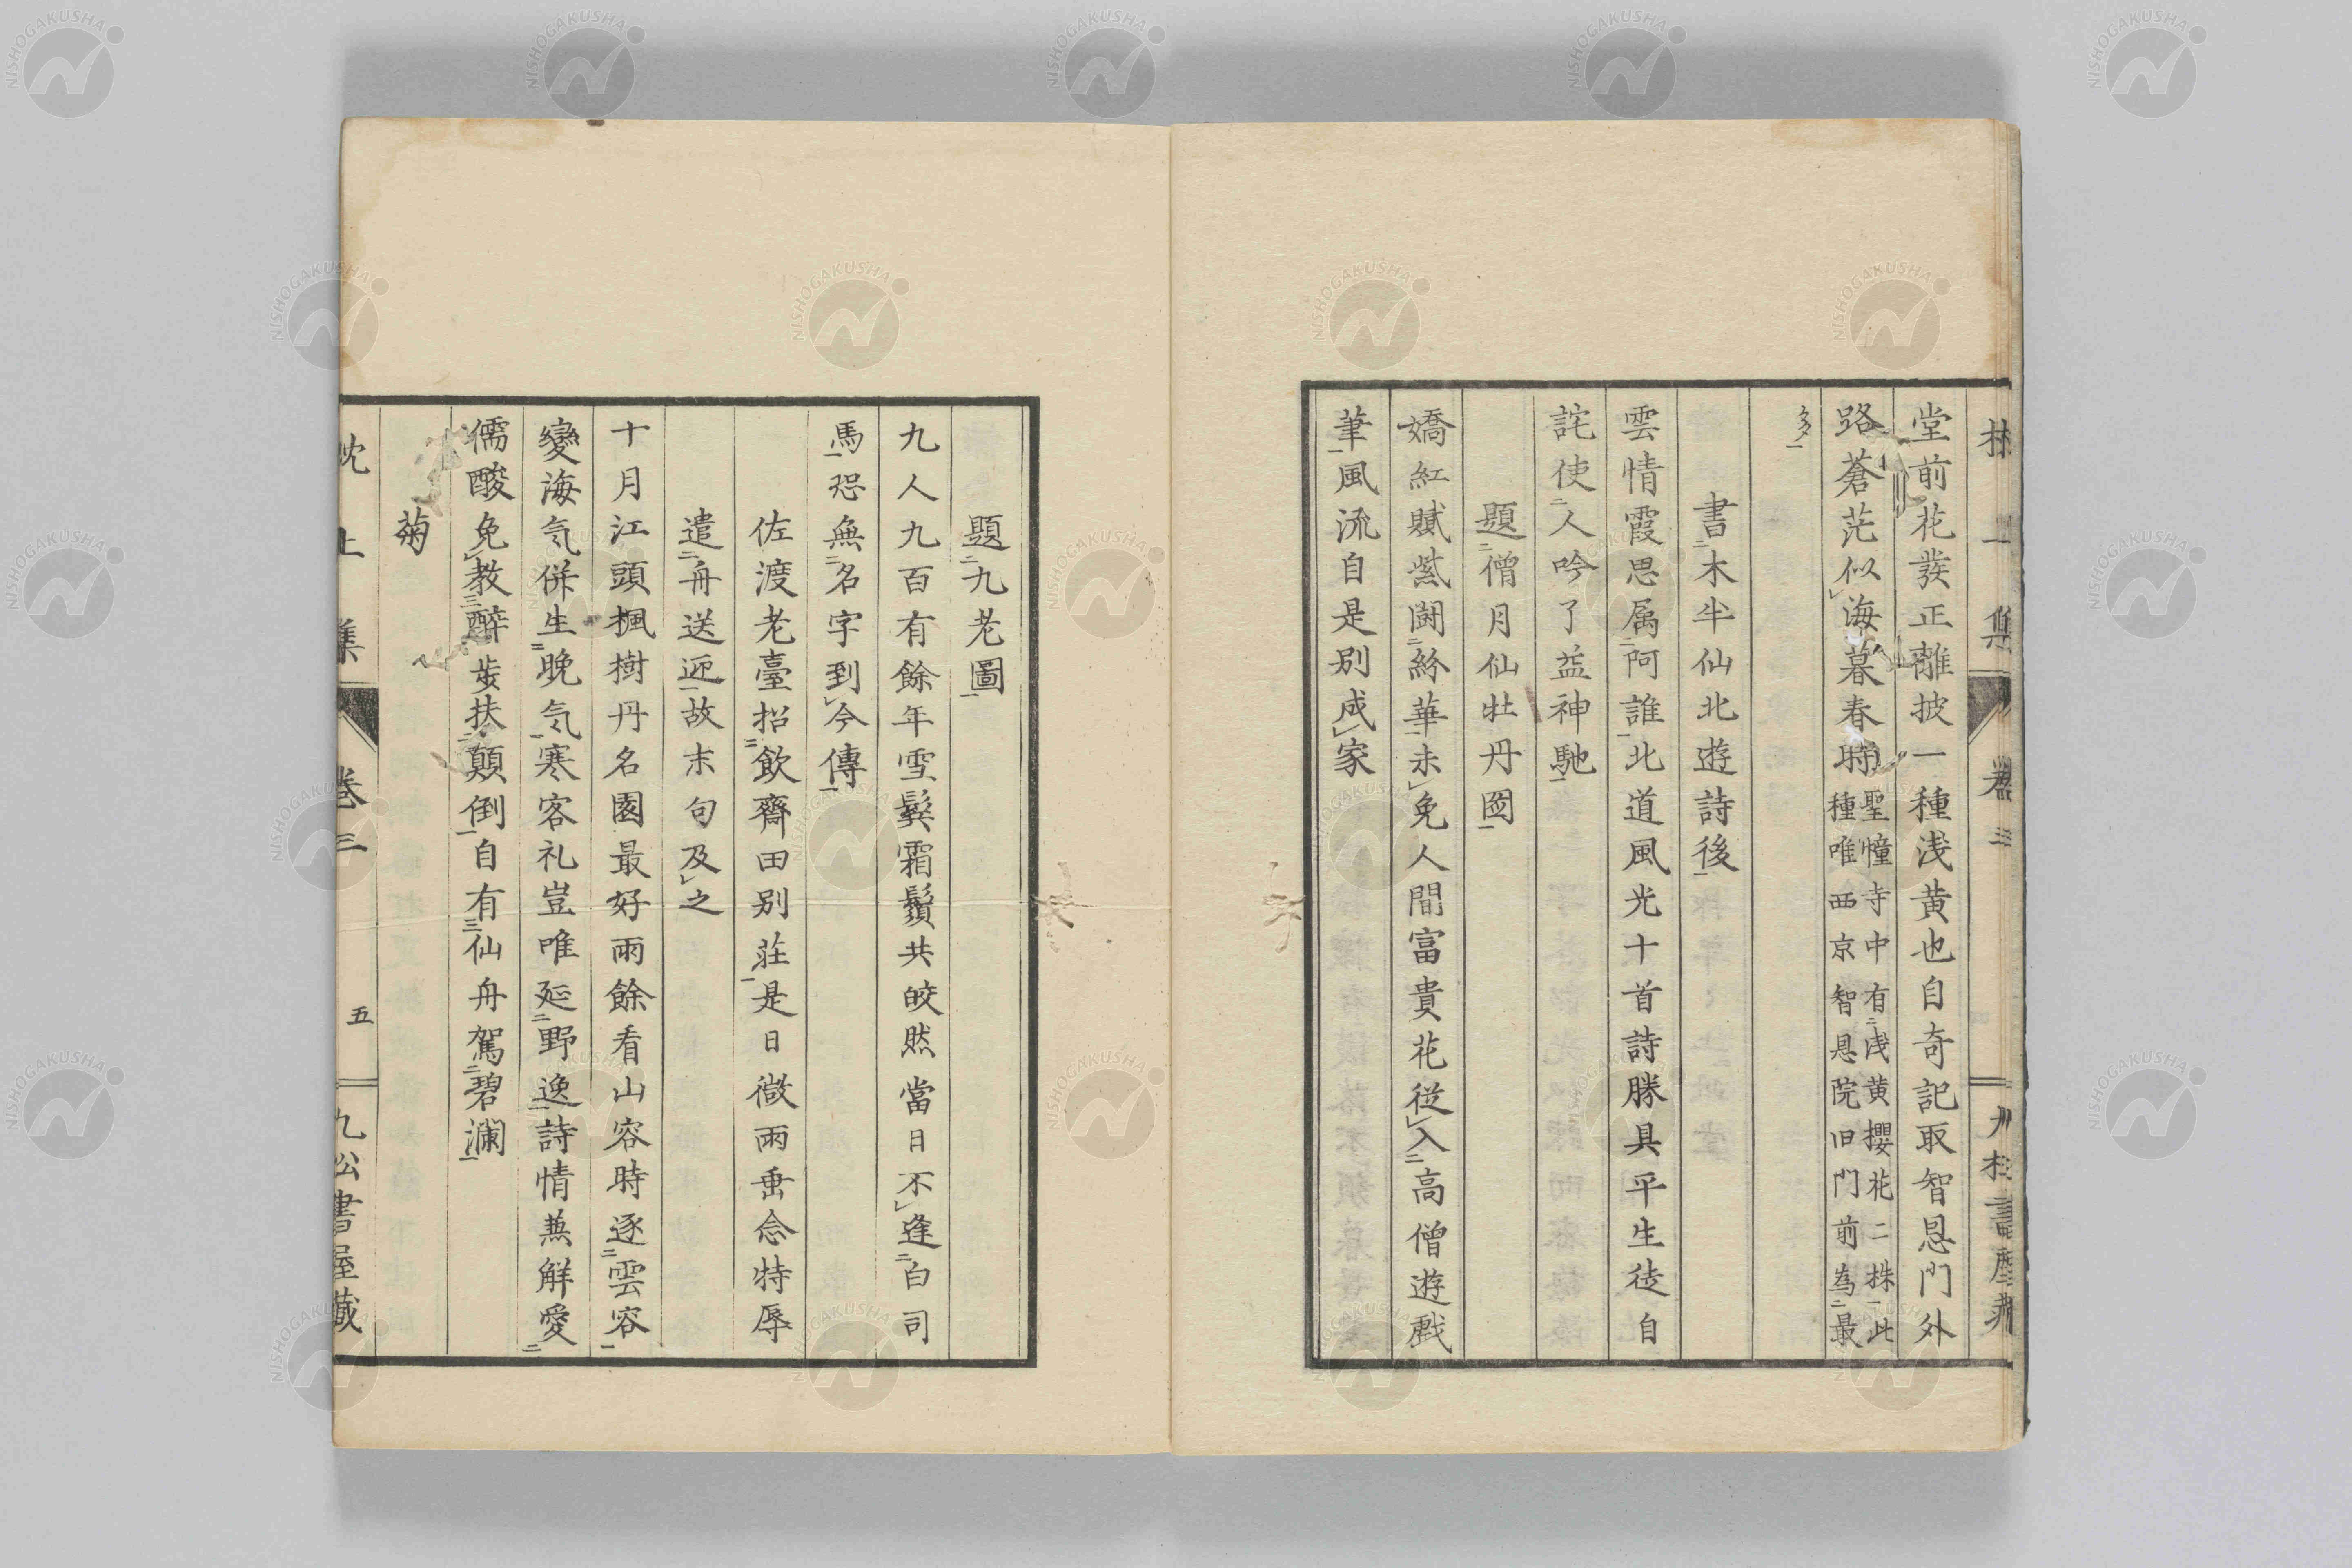 堂前花發正離披一種浅黄也自奇記取智恩門外
路蒼茫似海暮春時聖幢寺中有二浅黄櫻花二株一此
種唯西京智恩院旧門前為二最
多一
書二木半仙北遊詩後一
雲情霞思属二阿誰一北道風光十首詩勝具平生徒自
詫使二人吟了益神馳一
題二僧月仙牡丹図一
嬌紅賦紫闘二紛華一未レ免人間富貴花従レ入二高僧遊戲
筆一風流自是別成レ家
題二九老圖一
九人九百有餘年雪鬓霜鬚共皎然當日不レ逢二白司
馬一恐無二名字到レ今傳一
佐渡老臺招二飲齋田別莊一是日微雨垂念特辱
遣二舟送迎一故末句及レ之
十月江頭楓樹丹名園最好雨餘看山容時逐二雲容一
變海気併生二晚気一寒客礼豈唯延二野逸一詩情兼解愛二
儒酸免レ教三醉步扶二顛倒一自有三仙舟駕二碧瀾一
菊
枕上集
卷三
五
九松書屋藏